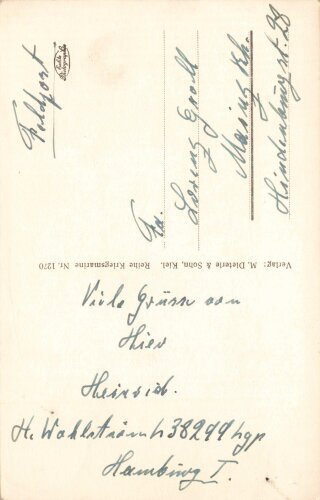 Feldpost
Fa.
Lorenz Groll
Mainz Rh.
Hindenburgst. 28
Verlag: M. Dieterle & Sohn, Kiel. Reihe Kriegsmarine Nr. 1270
Viele Grüsse von
Hier
Heinrich.
H. Wohlström h 38299 hgp
Hamburg I.